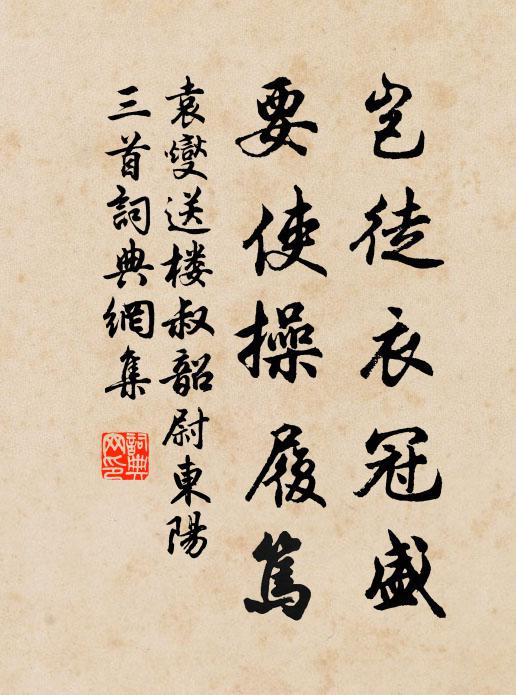 豈徒衣冠盛
要使操履篤
袁燮送楼叔韶尉東陽
三首詞典網集
詞典
网印